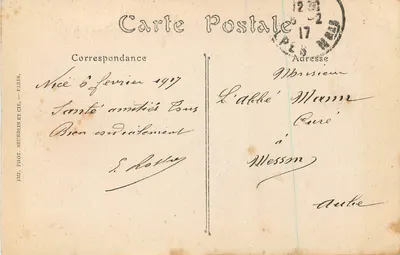 Carte Postale
12 30
6-2
17
Correspondance
Adresse
Nice 6 fevrier 1917
Santé amitiés Tous
Bien cordialement
Monsieur
L'abbé Mann
Curé
à
Aube
IMP. PHOT. NEURDEIN ET CIE. — PARIS.